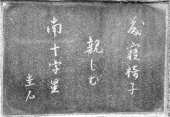 籐寝椅子
親しむ
南十字星
圭石